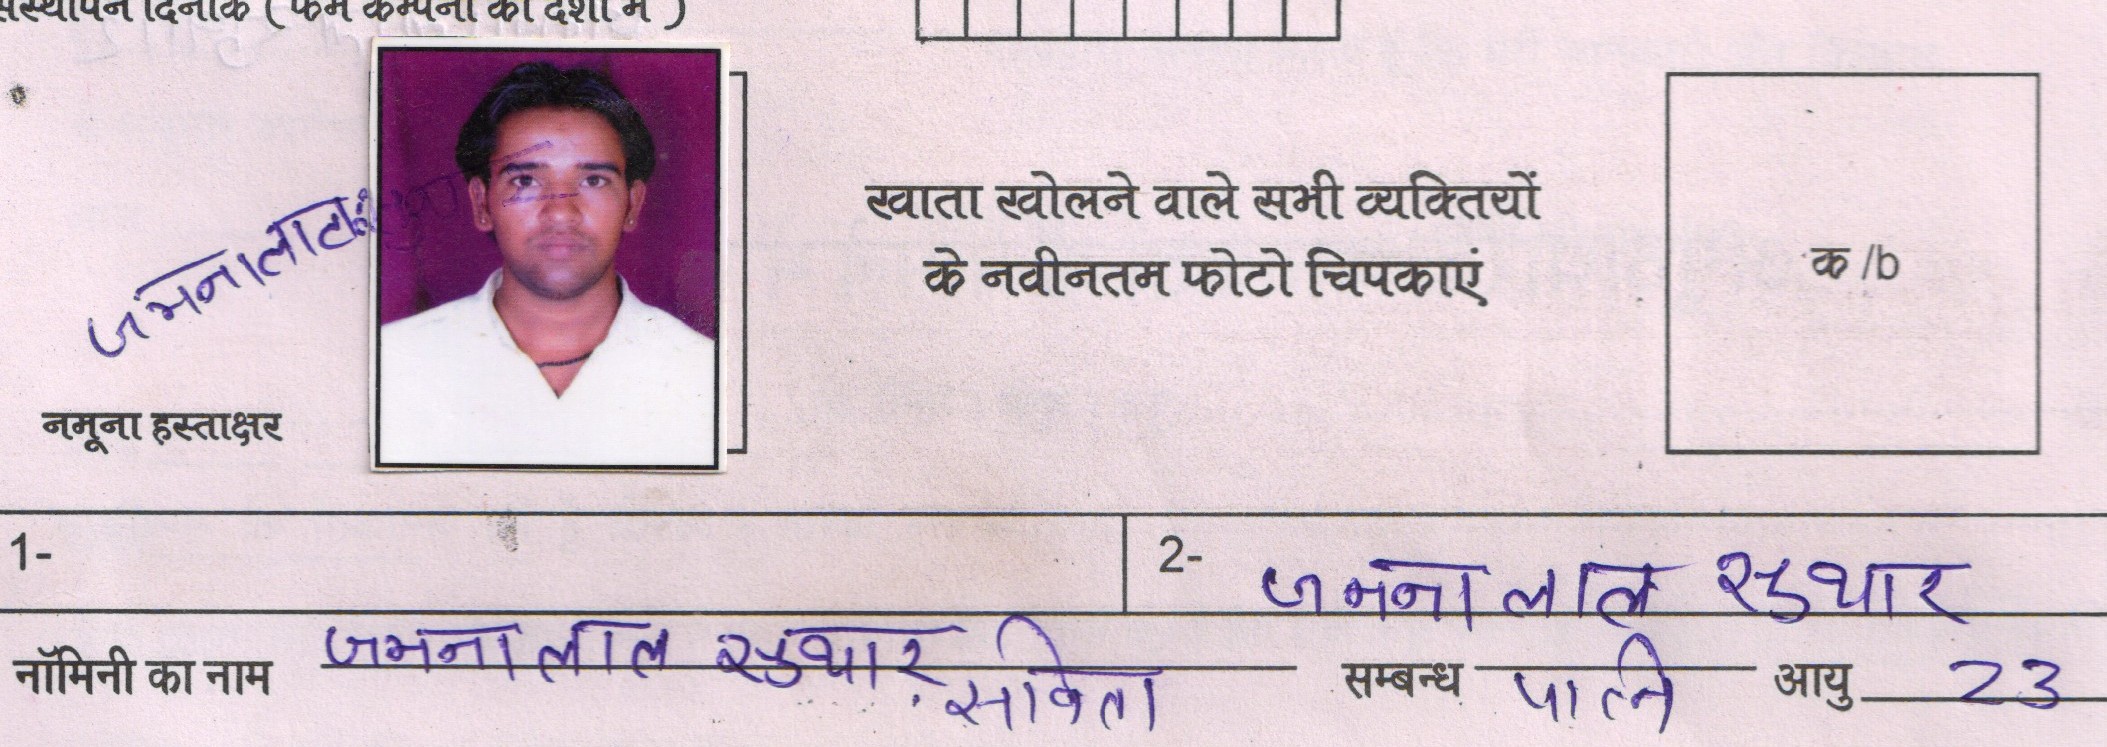 संस्थापन दिनांक ( फर्म कम्पनी की दशा में )
जमनालाल
खाता खोलने वाले सभी व्यक्तियों
के नवीनतम फोटो चिपकाएं
क /b
नमूना हस्ताक्षर
1-
2- जमना लाल सुथार
नॉमिनी का नाम जमना लाल सुथार सविता सम्बन्ध पत्नि आयु 23